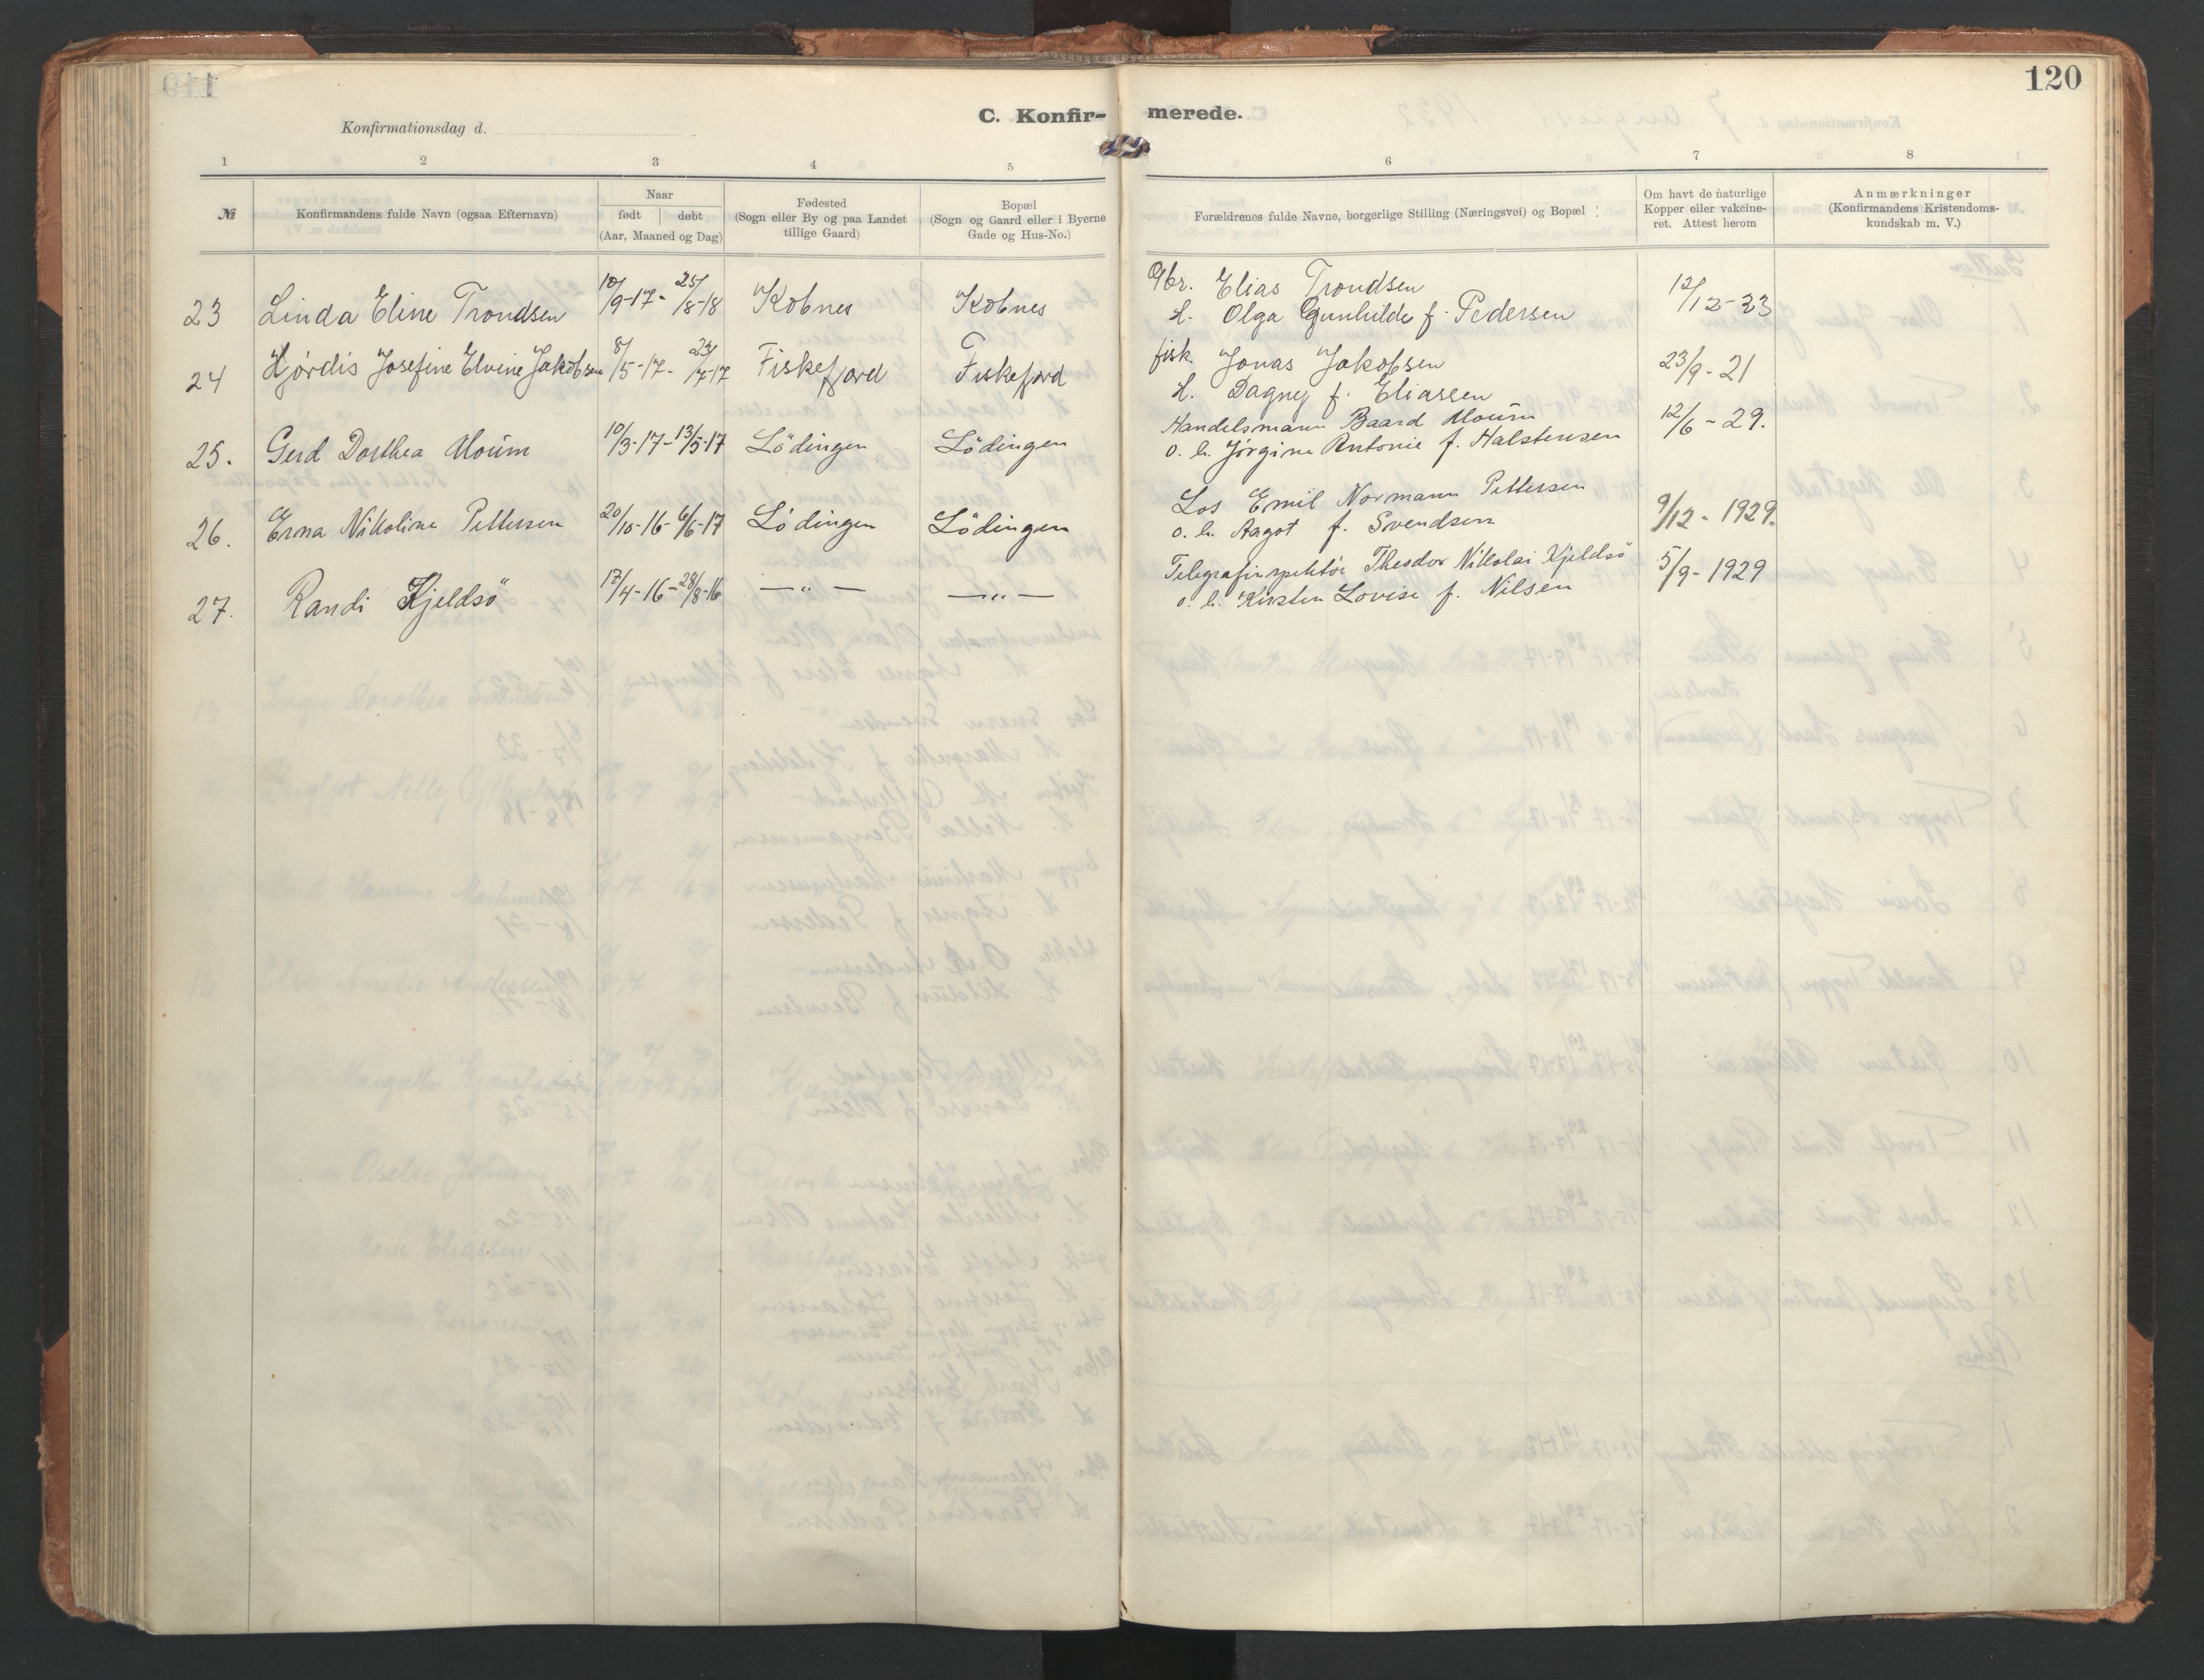 120
C. Konfirmerede.
Konfirmationsdag d.
1 2 3 4 5 6 7 8
№
Konfirmandens fulde Navn (ogsaa Efternavn)
Naar
født | døbt
(Aar, Maaned og Dag)
Fødested
(Sogn eller By og paa Landet
tillige Gaard)
Bopæl
(Sogn og Gaard eller i Byerne
Gade og Hus-No.)
Forældrenes fulde Navne, borgerlige Stilling (Næringsvei) og Bopæl
Om havt de naturlige
Kopper eller vakcine-
ret. Attest herom
Anmærkninger
(Konfirmandens Kristendoms-
kundskab m. V.)
23 Linda Eline Trondsen 10/9-17- 25/8-18 Kobnes Kobnes Gbr. Elias Trondsen 12/12-23
H. Olga Gunhilde f. Pedersen
24 Hjørdis Josefine Elvine Jakobsen 8/5-17- 29/7-17 Fiskefjord Fiskefjord fisk. Jonas Jakobsen 23/9-21
H. Dagny f. Eliassen
25. Gerd Dorthea Moum 10/3-17- 13/5-17 Lödingen Lödingen Handelsmann Baard Moum 12/6-29.
o. h. Jörgine Antonie f. Halstensen
26. Erna Nikoline Pettersen 20/10-16- 6/6-17 Lödingen Lödingen Los Emil Normann Pettersen 9/12-1929.
o. h. Aagot f. Svendsen
27. Randi Kjeldsö 17/4-16- 28/8-16 —"— —"— Telegrafinspektör Theodor Nikolai Kjeldsö 5/9-1929
o. h. Kirsten Lovise f. Nilsen